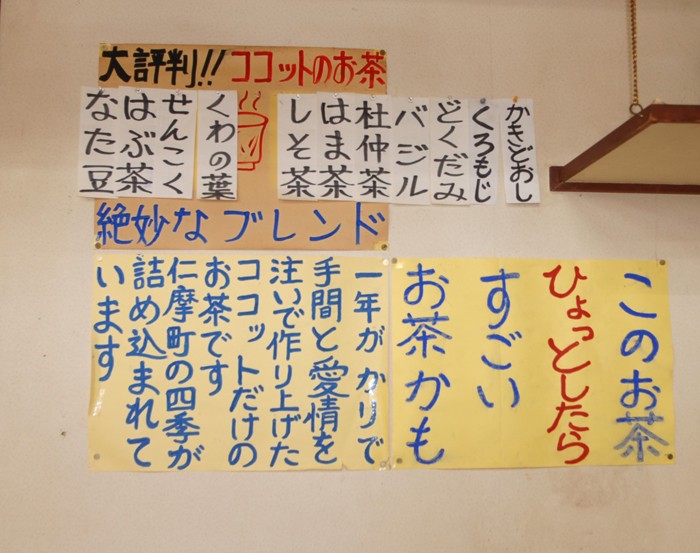 大評判!!ココットのお茶
かきどおし
くろもじ
どくだみ
バジル
杜仲茶
はま茶
しそ茶
くわの葉
せんこく
はぶ茶
なた豆
絶妙なブレンド
このお茶
ひょっとしたら
すごい
お茶かも
一年がかりで
手間と愛情を
注いで作り上げた
ココットだけの
お茶です
仁摩町の四季が
詰め込まれて
います